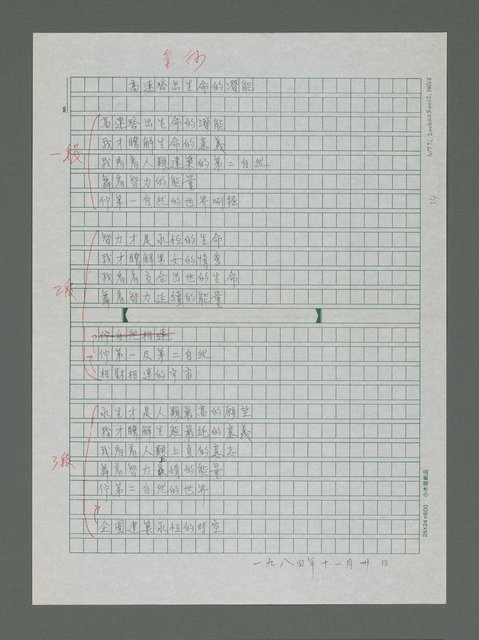 高速發出生命的潛能
高速發出生命的潛能
一段
我才瞭解生命的意義
我看看人類建築的第二自然
舞着智力的能量
佇第一自然的世界
智力才是永恒的生命
我才瞭解男女的情愛
2段
我看看交合出世的生命
舞着智力延續的能量
佇自然相連
佇第一及第二自然
相對相連的宇宙
永生才是人類最高的願望
我才瞭解生殖最純的意義
3段
我看看人類上真的意志
舞着智力 情的能量
佇第二自然的世界
企圖建築永恒的時空
一九八四年十一月卅日
25×24=600 小木屋紙品